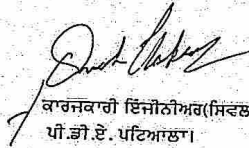 ਕਾਰਜਕਾਰੀ ਇੰਜੀਨੀਅਰ(ਸਿਵਲ
ਪੀ.ਡੀ.ਏ. ਪਟਿਆਲਾ।